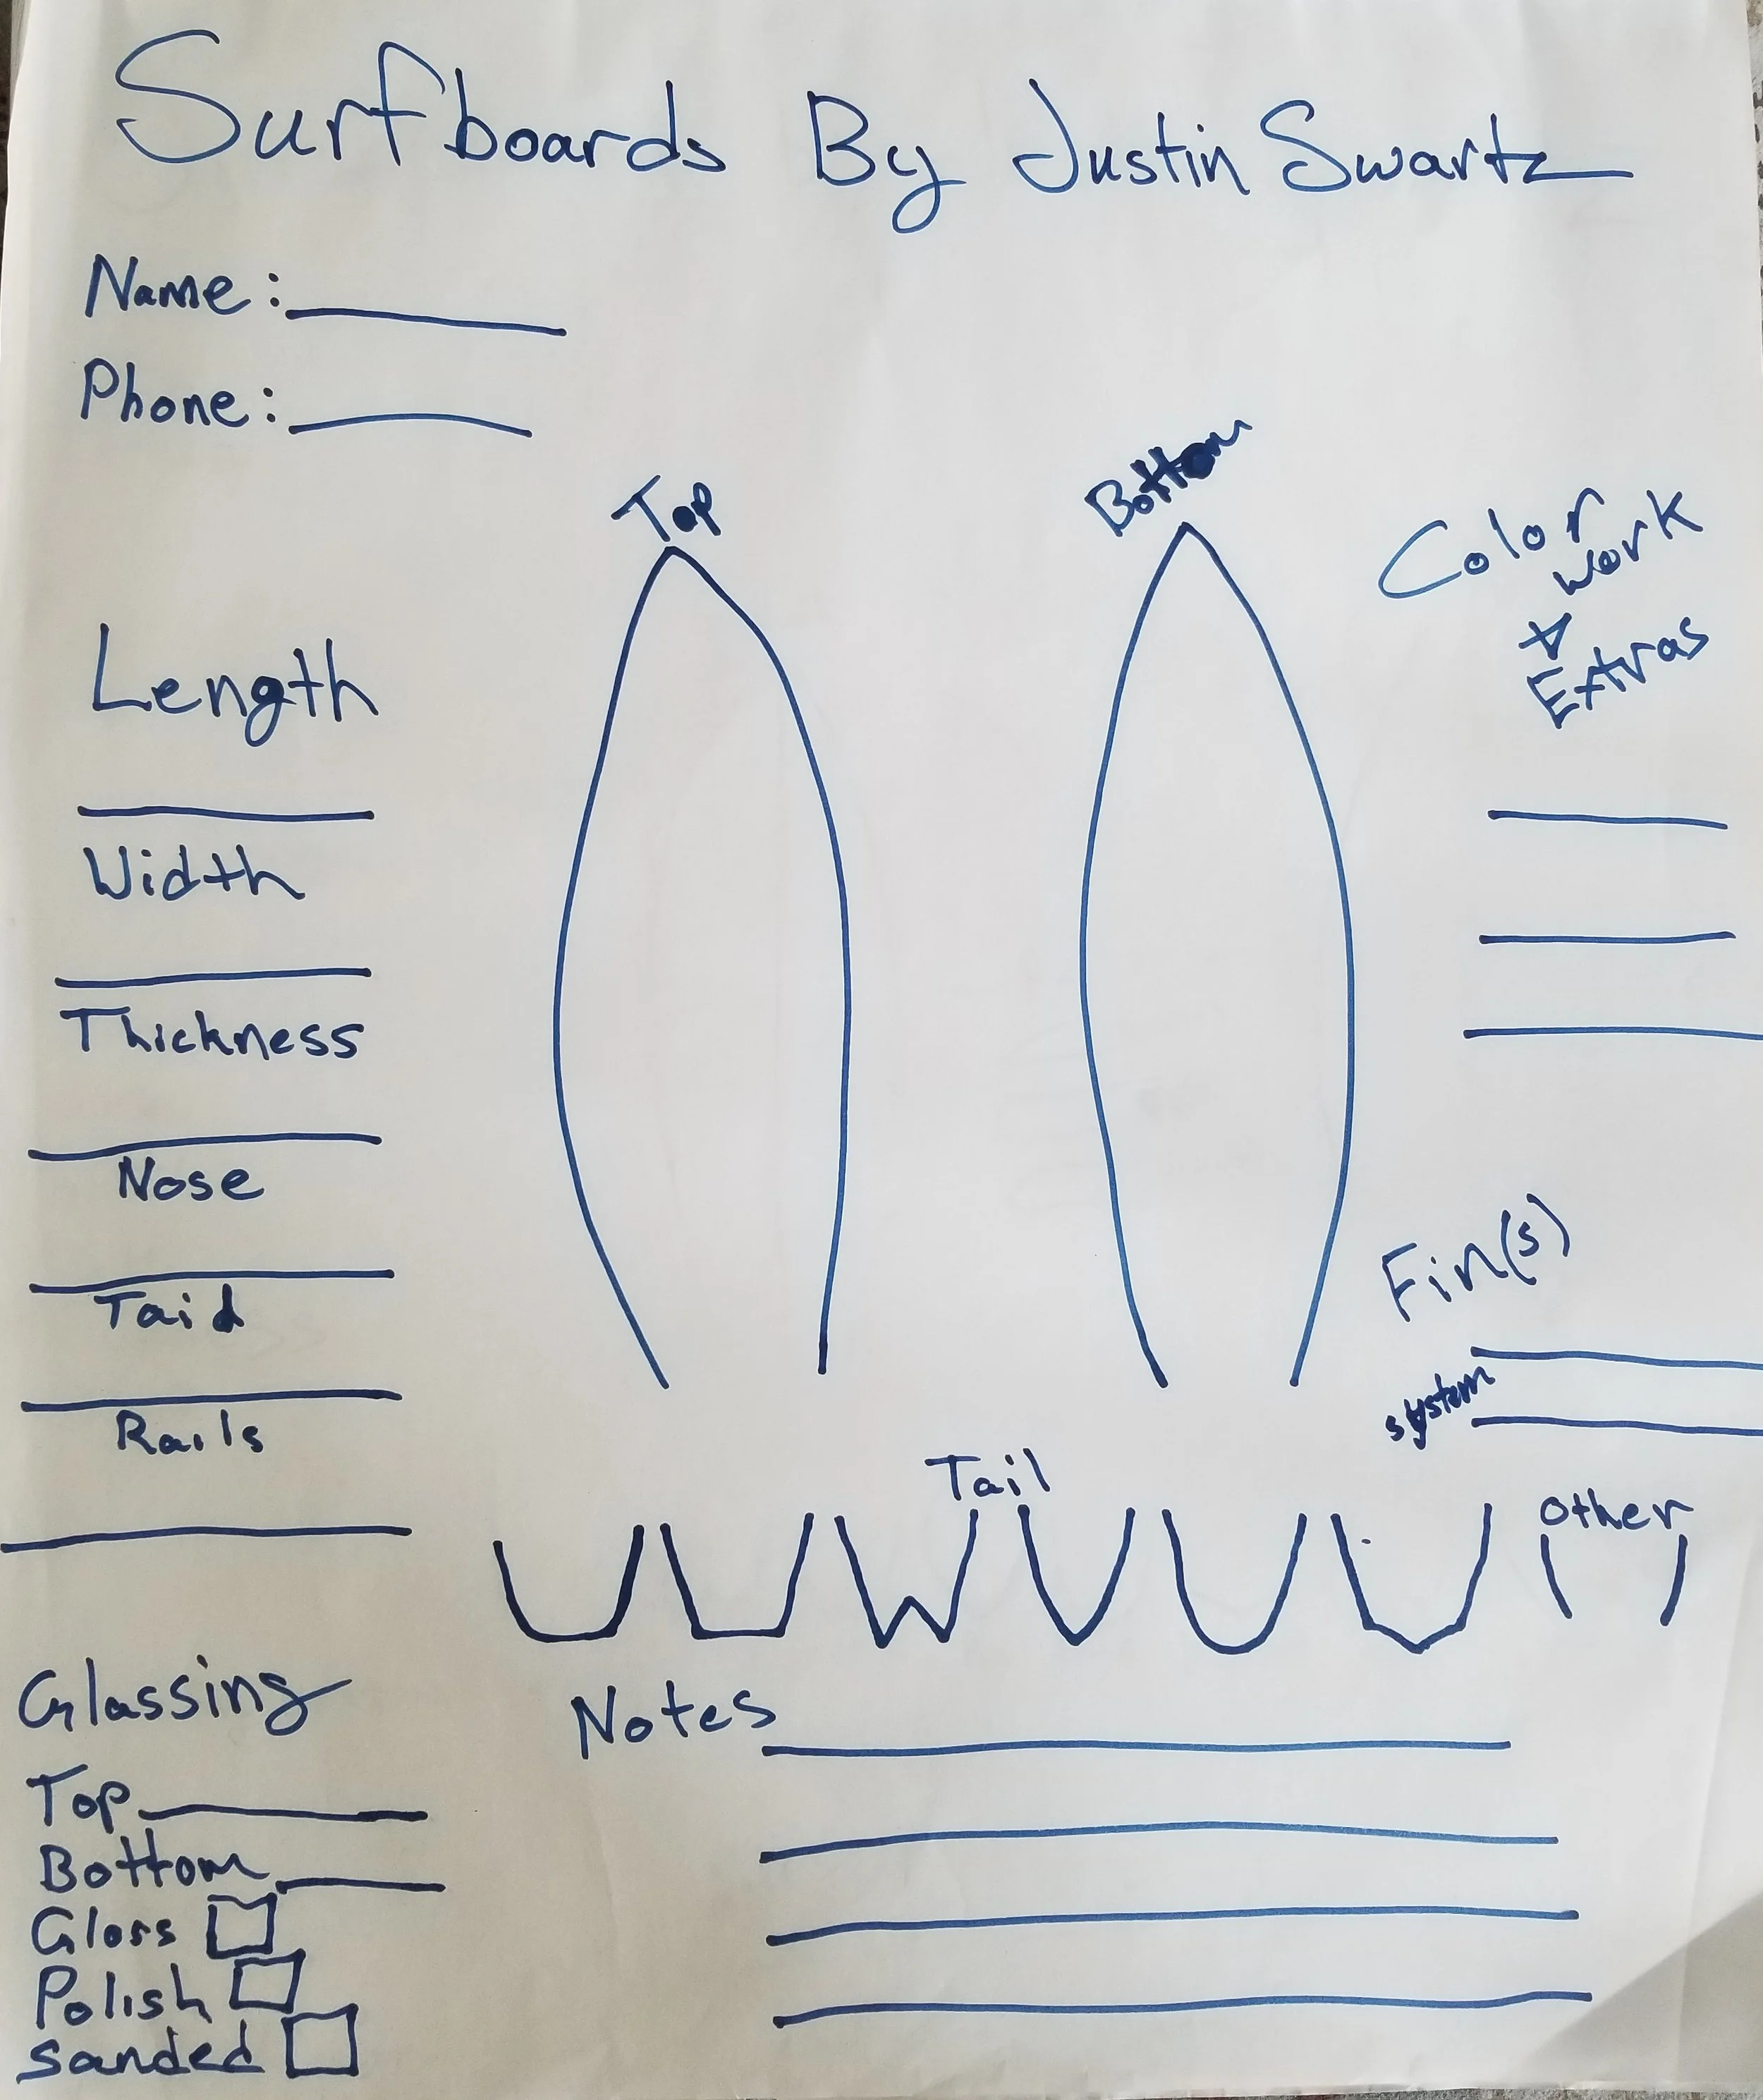 Surfboards By Justin Swartz
Name:
Phone:
Top
Bottom
Color work
&
Extras
Length
Width
Thickness
Nose
Taid
Rails
Fin(s)
system
Tail
Other
Glassing
Top
Bottom
Gloss
Polish
sanded
Notes